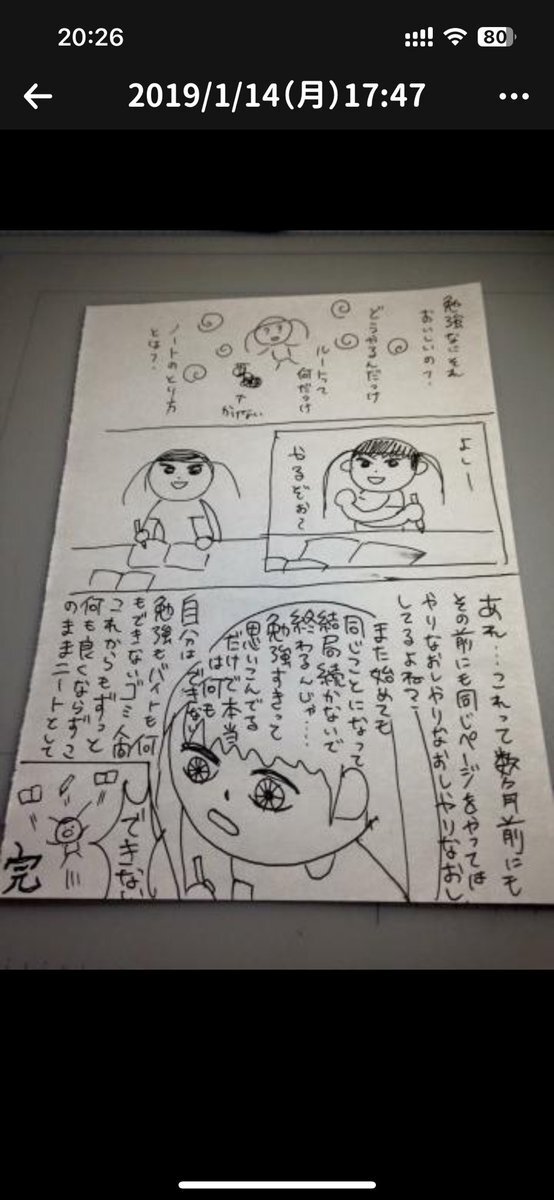 20:26
80
2019/1/14(月)17:47
勉強なにそれ
おいしいの?
どうやるんだっけ
ルートって
何だっけ
かけない
ノートのとり方
とは?
よしー
やるぞぉ〜
あれ…これって数ヶ月前にも
その前にも同じページをやっては
やりなおしやりなおしやりなおし
してるよね?
また始めても
同じことになって
結局続かないで
終わるんじゃ…
勉強すきって
思いこんでる
だけで本当
は何も
できない
自分は
勉強もバイトも何
もできないゴミ人間
これからもずっと
何も良くならずこ
のままニートとして
できない
完